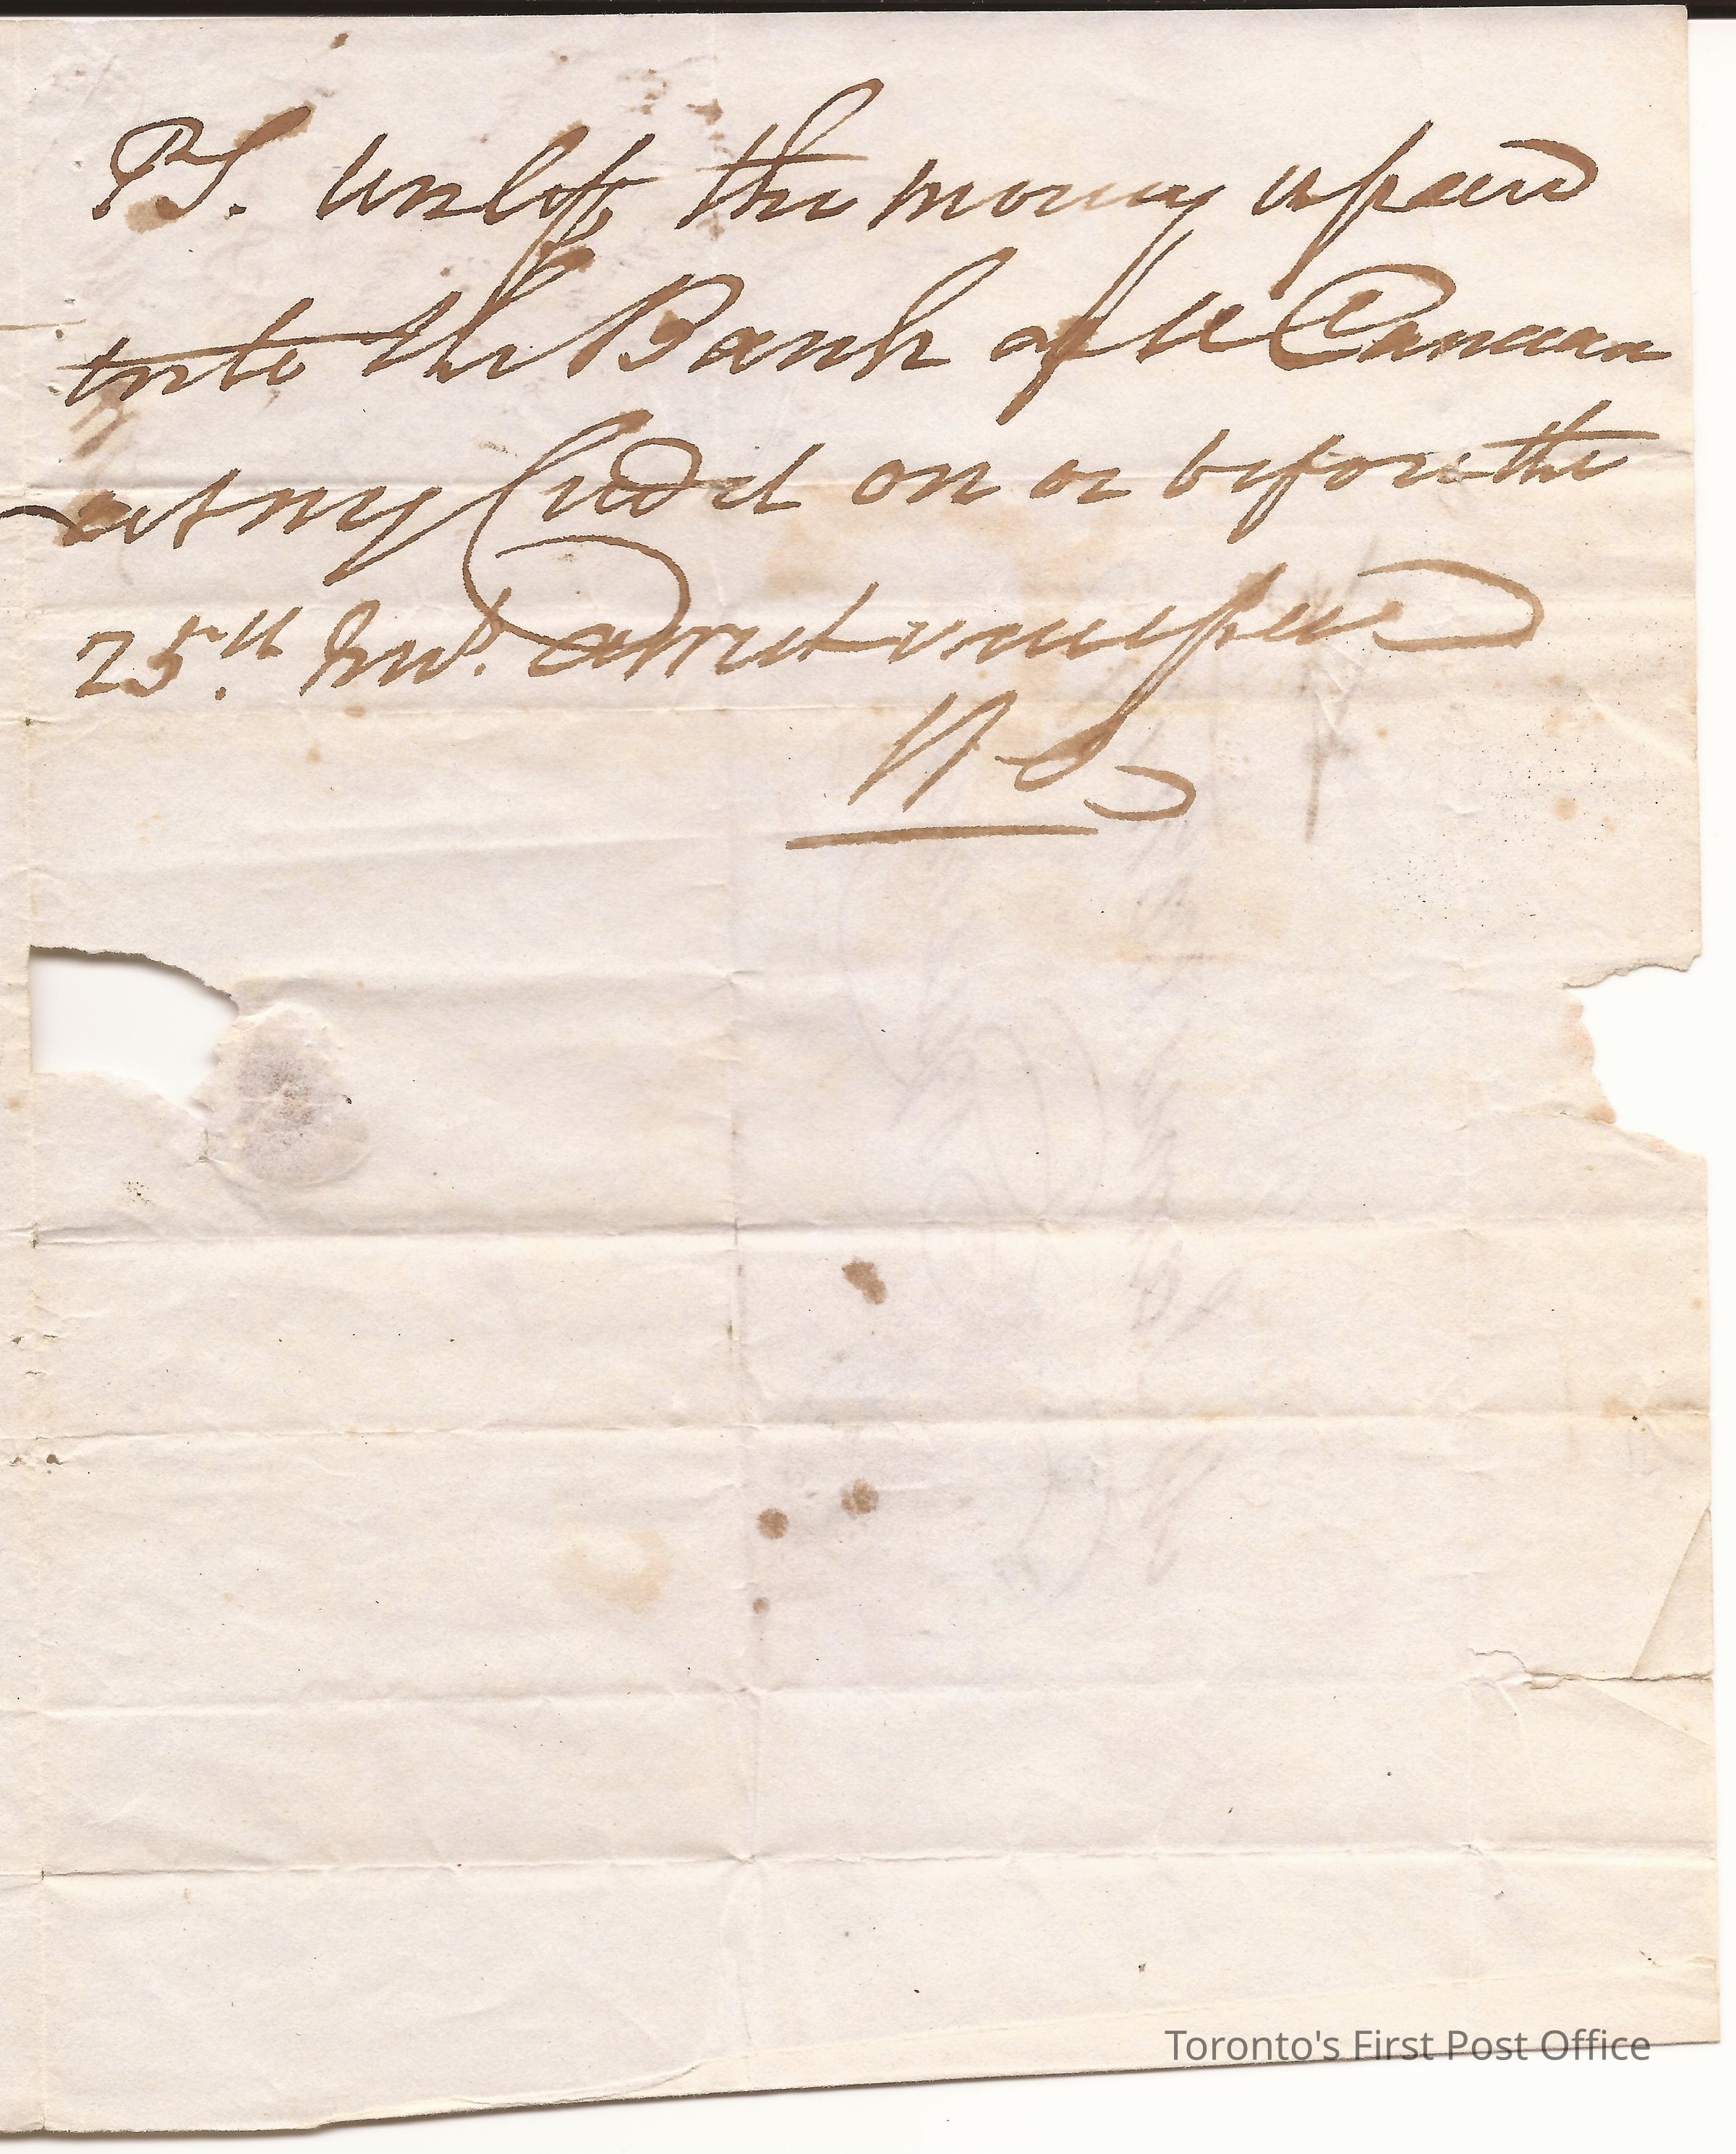 PS. Unless the money is paid
into the Bank of U Canada
at my Credit on or before the
25.th Inst.
Toronto's First Post Office